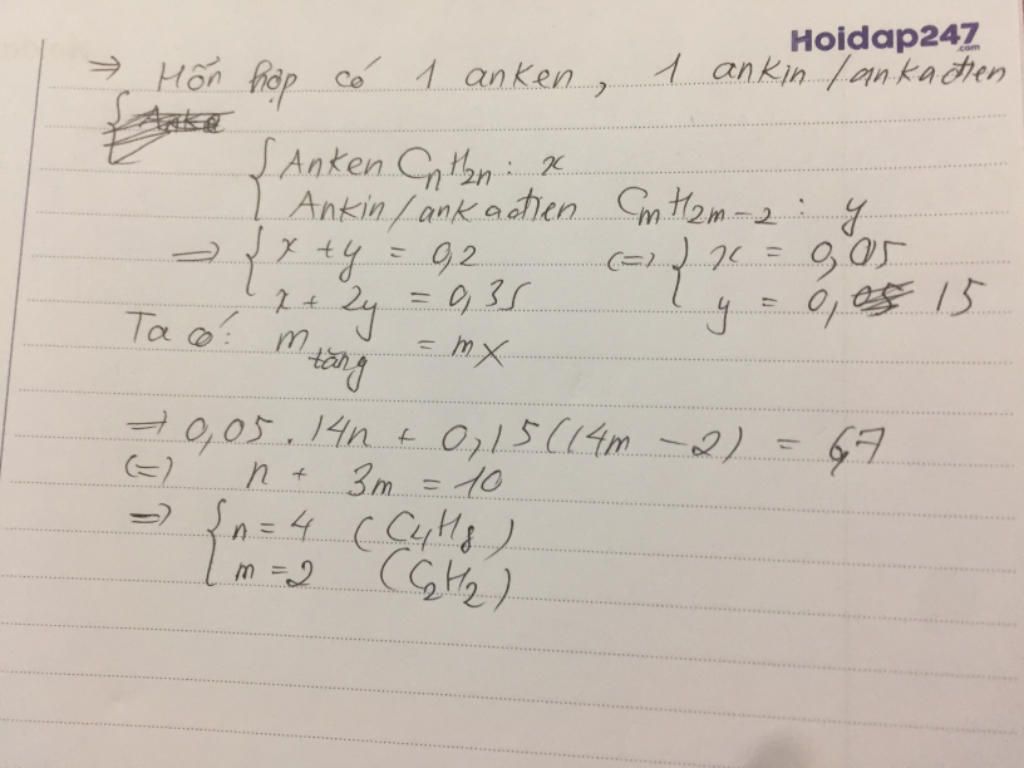 Hoidap247
.com
=> Hỗn hợp có 1 anken, 1 ankin/ankađien
{ Anken CnH2n : x
Ankin/ankađien CmH2m-2 : y
=> { x + y = 0,2 (=) { x = 0,05
x + 2y = 0,35 y = 0,15
Ta có: m tăng = mX
=> 0,05 . 14n + 0,15(14m - 2) = 6,7
(=) n + 3m = 10
=> { n = 4 (C4H8)
m = 2 (C2H2)